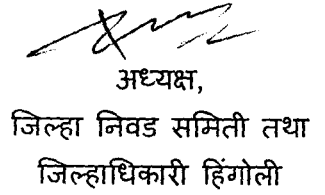 अध्यक्ष,
जिल्हा निवड समिती तथा
जिल्हाधिकारी हिंगोली